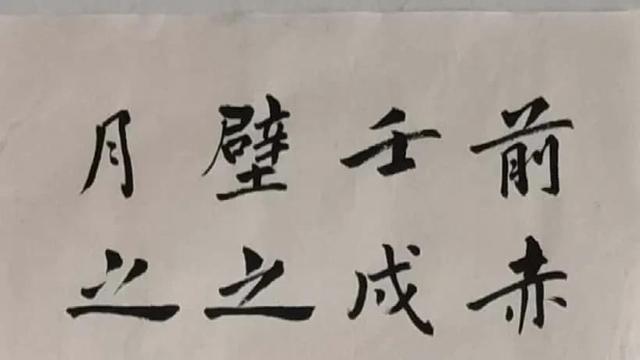 前赤
壬戌
壁之
月之